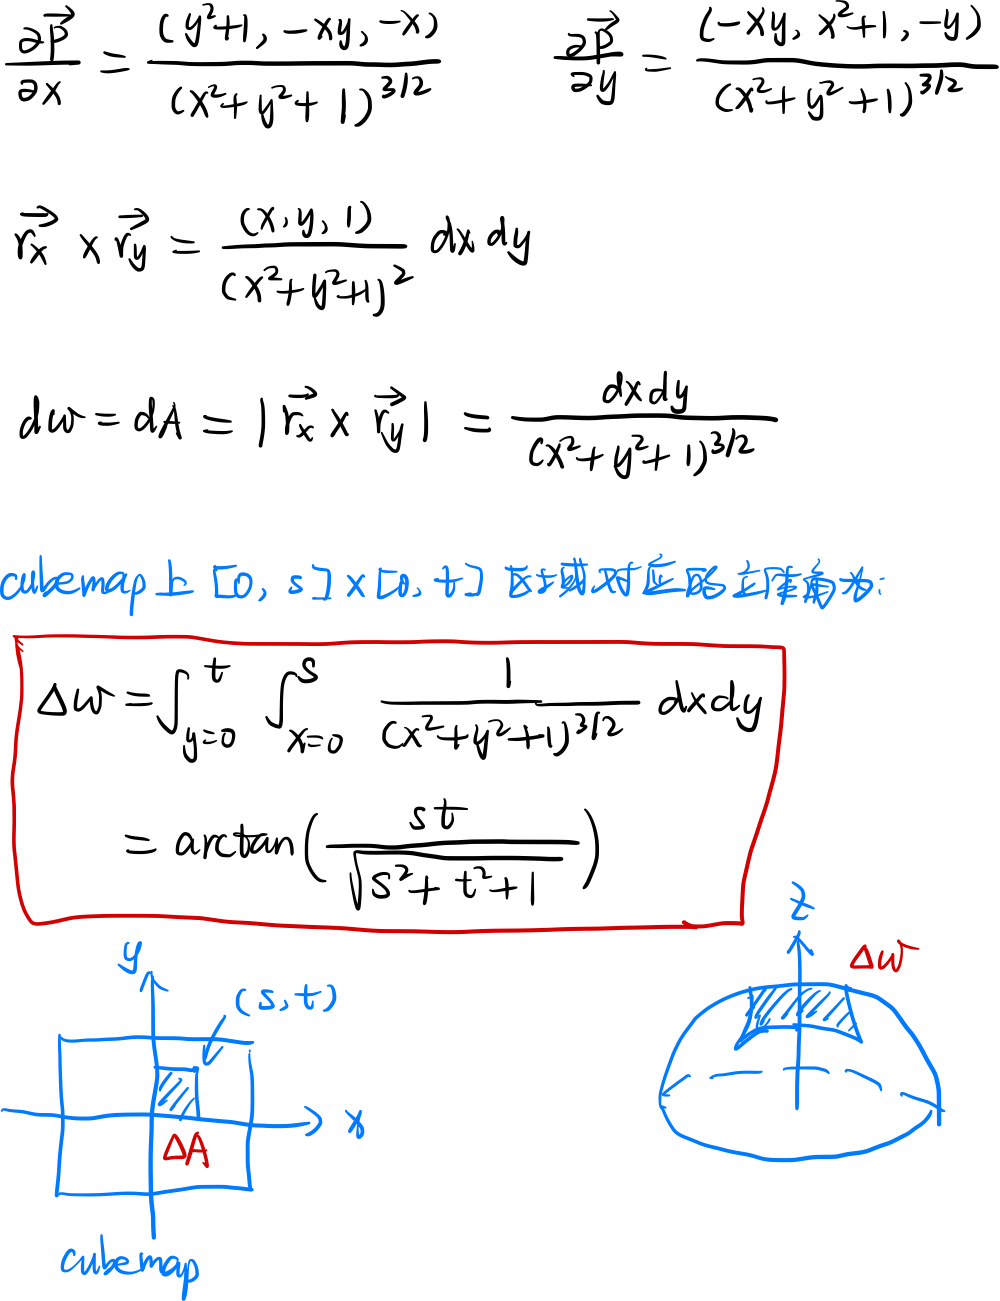 ∂p⃗/∂x = (y²+1, -xy, -x)/(x²+y²+1)^3/2    ∂p⃗/∂y = (-xy, x²+1, -y)/(x²+y²+1)^3/2
r⃗x × r⃗y = (x, y, 1)/(x²+y²+1)² dx dy
dω = dA = |r⃗x × r⃗y| = dxdy/(x²+y²+1)^3/2
cubemap上 [0, s] x [0, t] 区域对应的立体角为:
Δω = ∫_{y=0}^{t} ∫_{x=0}^{s} 1/(x²+y²+1)^3/2 dxdy
= arctan(st/√(s²+t²+1))
z
Δω
y
(s, t)
x
ΔA
cubemap